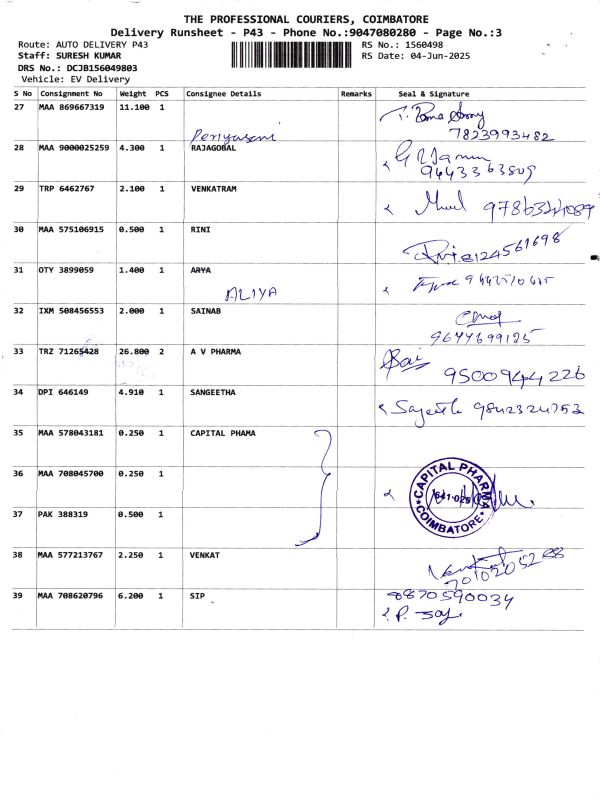 THE PROFESSIONAL COURIERS, COIMBATORE
Delivery Runsheet - P43 - Phone No.:9047080280 - Page No.:3
Route: AUTO DELIVERY P43 RS No.: 1560498
Staff: SURESH KUMAR RS Date: 04-Jun-2025
DRS No.: DCJB156049803
Vehicle: EV Delivery
S No Consignment No Weight PCS Consignee Details Remarks Seal & Signature
27 MAA 869667319 11.100 1
7823993482
Periyasami
28 MAA 9000025259 4.300 1 RAJAGOBAL
9443363809
29 TRP 6462767 2.100 1 VENKATRAM
30 MAA 575106915 0.500 1 RINI
8124561698
31 OTY 3899059 1.400 1 ARYA
ALIYA
32 IXM 508456553 2.000 1 SAINAB
9644699125
33 TRZ 71265428 26.800 2 A V PHARMA
9500944226
34 DPI 646149 4.910 1 SANGEETHA
9842324753
35 MAA 578043181 0.250 1 CAPITAL PHAMA
36 MAA 708045700 0.250 1
CAPITAL PHARMA
641-025
COIMBATORE
37 PAK 388319 0.500 1
38 MAA 577213767 2.250 1 VENKAT
7010205288
39 MAA 708620796 6.200 1 SIP 8870590034
P. Joy